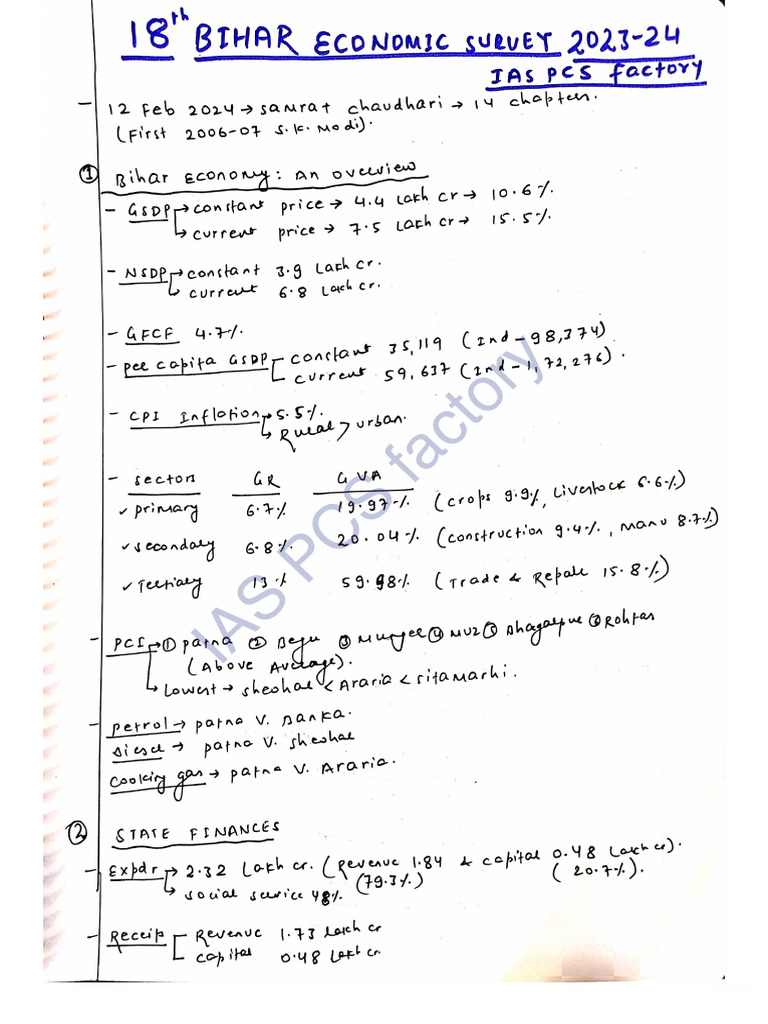 18th BIHAR ECONOMIC SURVEY 2023-24
IAS PCS factory
- 12 Feb 2024 → samrat chaudhari → 14 chapters.
(First 2006-07 S.K. Modi).
① Bihar Economy: An overview
- GSDP → constant price → 4.4 Lakh cr → 10.6%
↳ current price → 7.5 Lakh cr → 15.5%
- NSDP → constant 3.9 Lakh cr.
↳ current 6.8 Lakh cr.
- GFCF 4.7%
- per capita GSDP constant 35,119 (Ind - 98,374)
current 59,637 (Ind - 1,72,276).
- CPI Inflation → 5.5%
↳ Rural > urban.
- sectors GR GVA
✓ primary 6.7% 19.97% (crops 9.9%, Livestock 6.6%)
✓ secondary 6.8% 20.04% (construction 9.4%, manu 8.7%)
✓ Tertiary 13% 59.98% (Trade & Repair 15.8%)
- PCI → ① patna ② Begu ③ Munger ④ Muz ⑤ Bhagalpur ⑥ Rohtas
(Above Average).
↳ Lowest → sheohar < Araria < sitamarhi.
- Petrol → patna v. Banka.
Diesel → patna v. sheohar
cooking gas → patna v. Araria.
② STATE FINANCES
- Expdr → 2.32 Lakh cr. (Revenue 1.84 & capital 0.48 Lakh cr).
↳ social service 48% (79.3%) (20.7%).
- Receip Revenue 1.73 Lakh cr
capital 0.48 Lakh cr.
IAS PCS factory